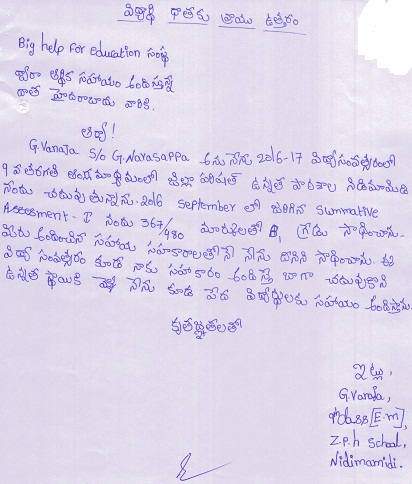 విద్యార్థి దాతకు వ్రాయు ఉత్తరం
Big help for education సంస్థ
ద్వారా ఆర్థిక సహాయం అందిస్తున్న
దాత హైదరాబాదు వారికి.
ఆర్యా!
G.Vanaja S/o G.Narasappa అను నేను 2016-17 విద్యాసంవత్సరంలో
9 వ తరగతి ఆంగ్లమాధ్యమంలో జిల్లా పరిషత్ ఉన్నత పాఠశాల నిడిమామిడి
నందు చదువు తున్నాను. 2016 September లో జరిగిన Summative
Assessment - I నందు 367/480 మార్కులతో B1 గ్రేడు సాధించాను.
మీరు అందించిన సహాయ సహకారాలతోనే నేను దీనిని సాధించాను. ఈ
విద్యా సంవత్సరం కూడ నాకు సహకారం అందిస్తే బాగా చదువుకొని
ఉన్నత స్థాయికి నేను కూడ పేద విద్యార్థులకు సహాయం అందిస్తాను.
కృతజ్ఞతలతో
ఇట్లు,
G.Vanaja,
9th class [E.m],
Z.P.h School,
Nidimamidi.